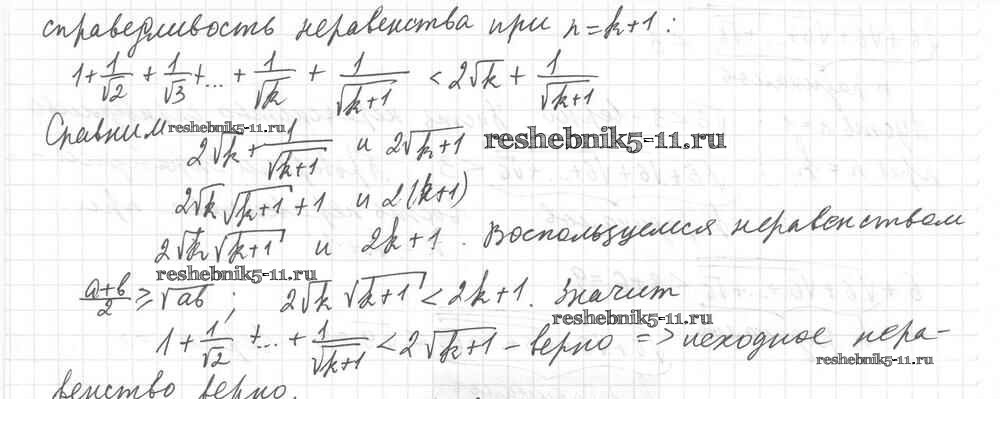 справедливость неравенства при n=k+1:
1+1/√2 + 1/√3 +...+ 1/√k + 1/√(k+1) < 2√k + 1/√(k+1)
Сравним reshebnik5-11.ru
2√k + 1/√(k+1) и 2√(k+1) reshebnik5-11.ru
2√k √(k+1) + 1 и 2(k+1)
2√k √(k+1) и 2k+1. Воспользуемся неравенством
reshebnik5-11.ru
(a+b)/2 ≥ √ab; 2√k √(k+1) < 2k+1. Значит
reshebnik5-11.ru
1+1/√2 +...+ 1/√(k+1) < 2√(k+1) - верно => исходное нера-
reshebnik5-11.ru
венство верно.